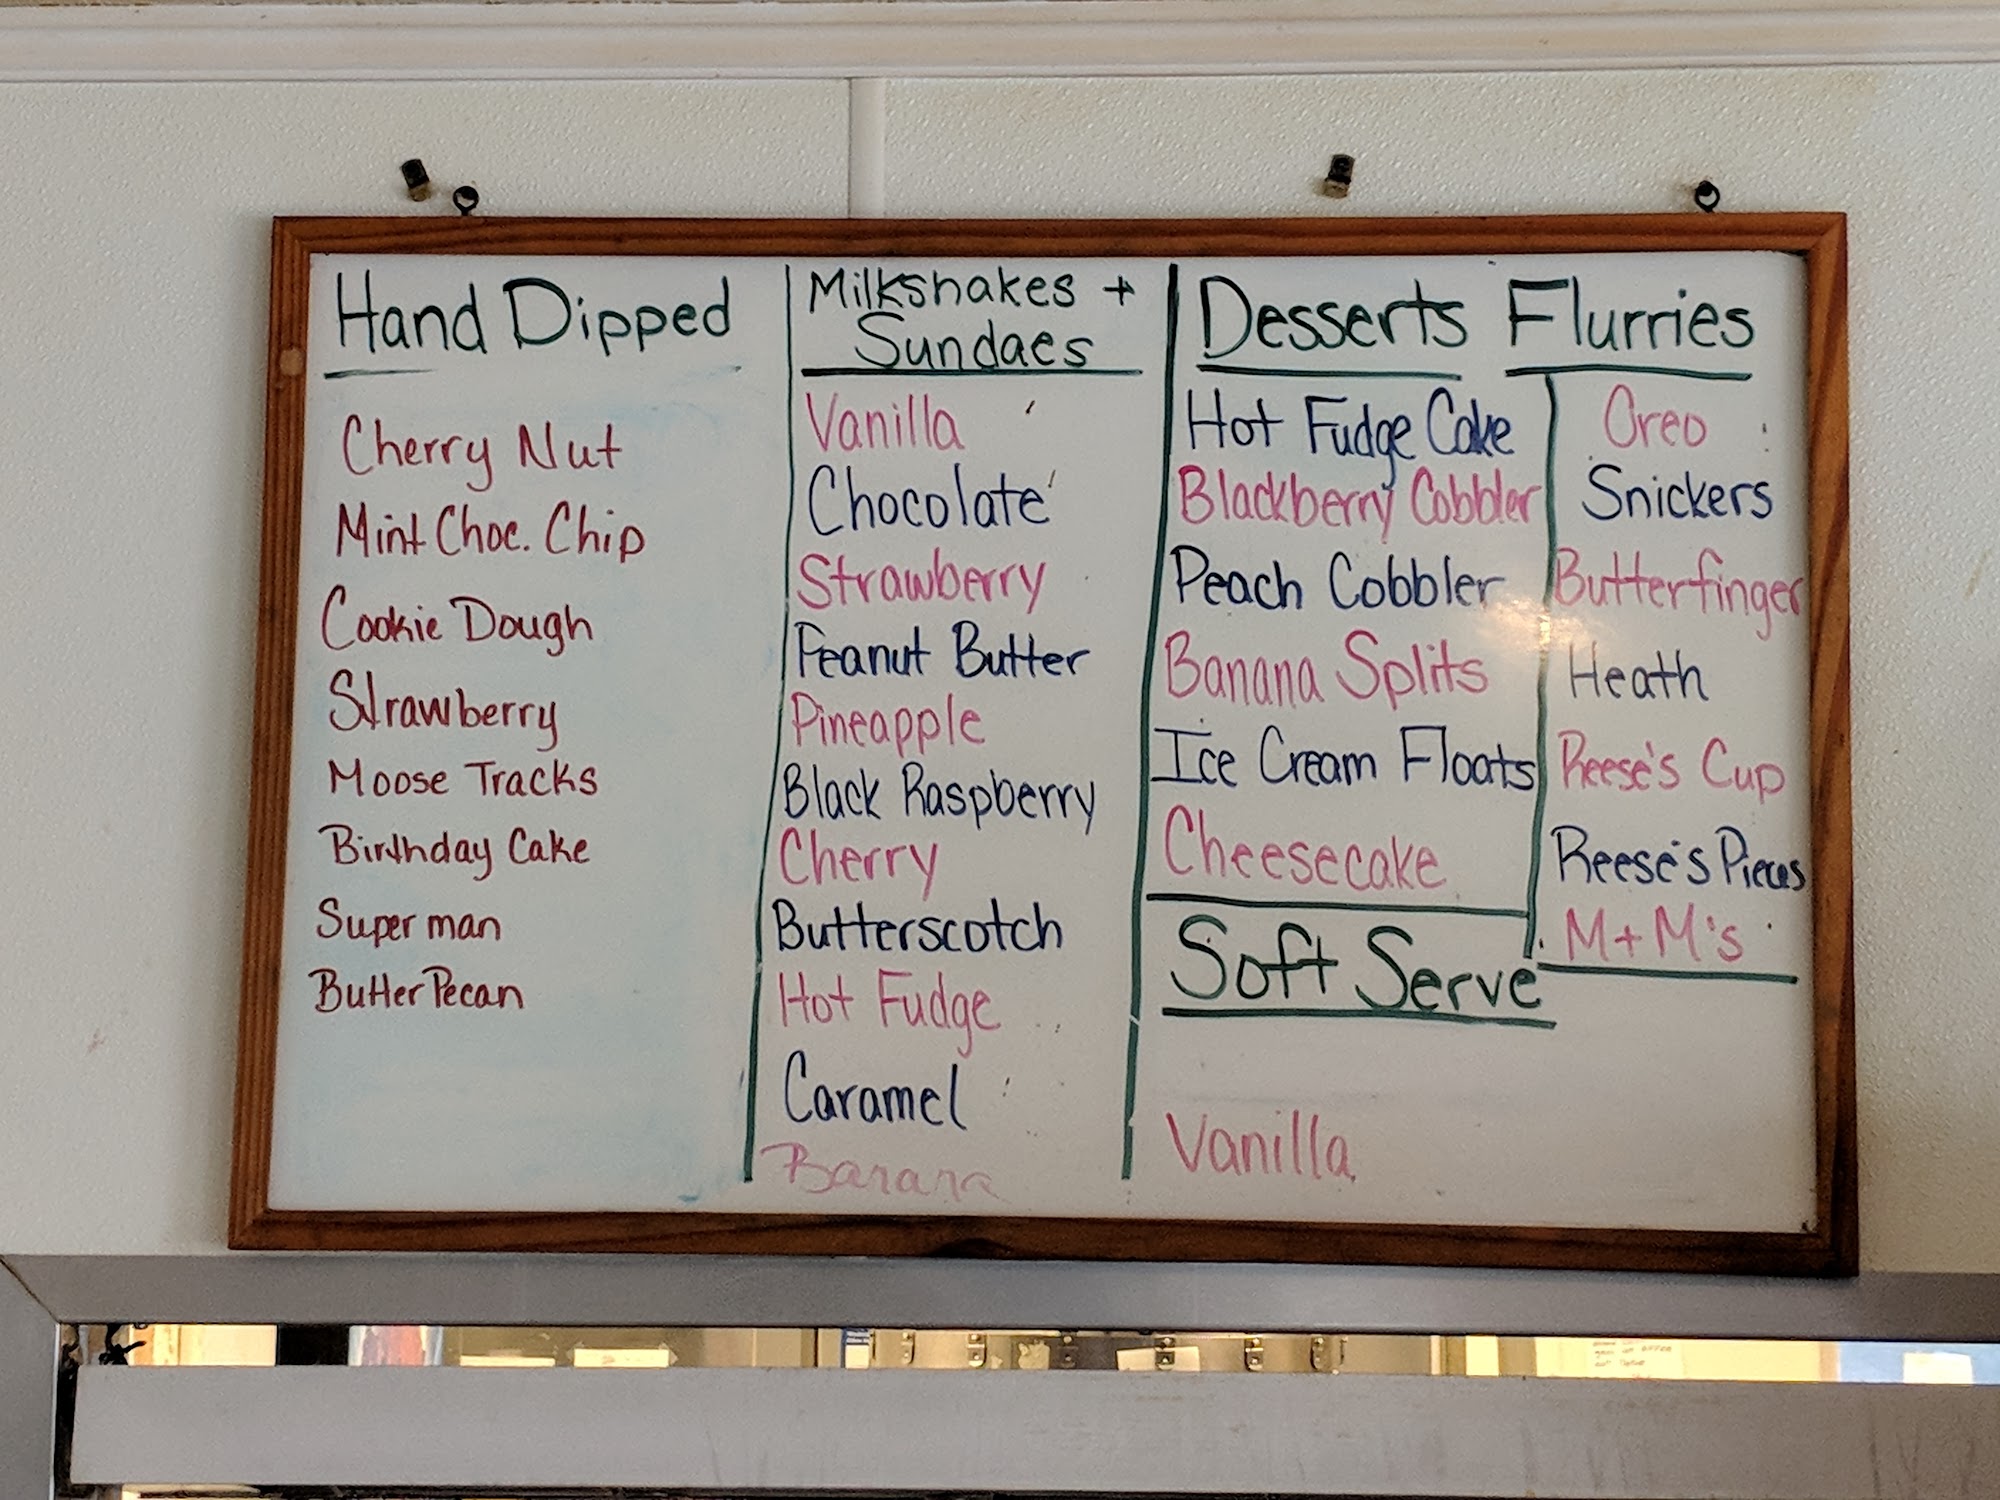 Hand Dipped
Cherry Nut
Mint Choc. Chip
Cookie Dough
Strawberry
Moose Tracks
Birthday Cake
Super man
Butter Pecan
Milkshakes +
Sundaes
Vanilla
Chocolate
Strawberry
Peanut Butter
Pineapple
Black Raspberry
Cherry
Butterscotch
Hot Fudge
Caramel
Banana
Desserts
Hot Fudge Cake
Blackberry Cobbler
Peach Cobbler
Banana Splits
Ice Cream Floats
Cheesecake
Flurries
Oreo
Snickers
Butterfinger
Heath
Reese's Cup
Reese's Pieces
M+M's
Soft Serve
Vanilla